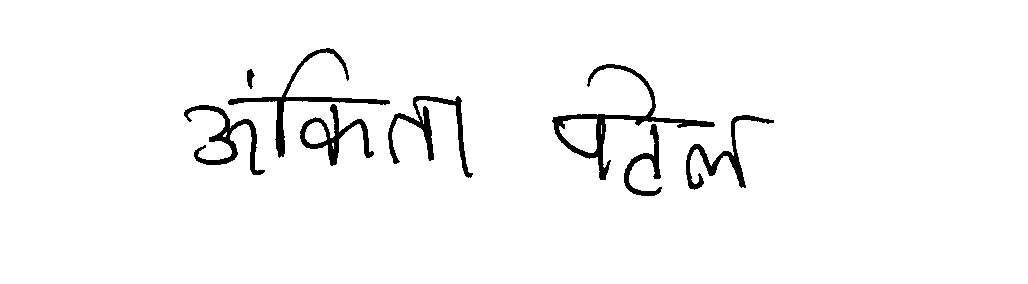 अंकिता पटेल